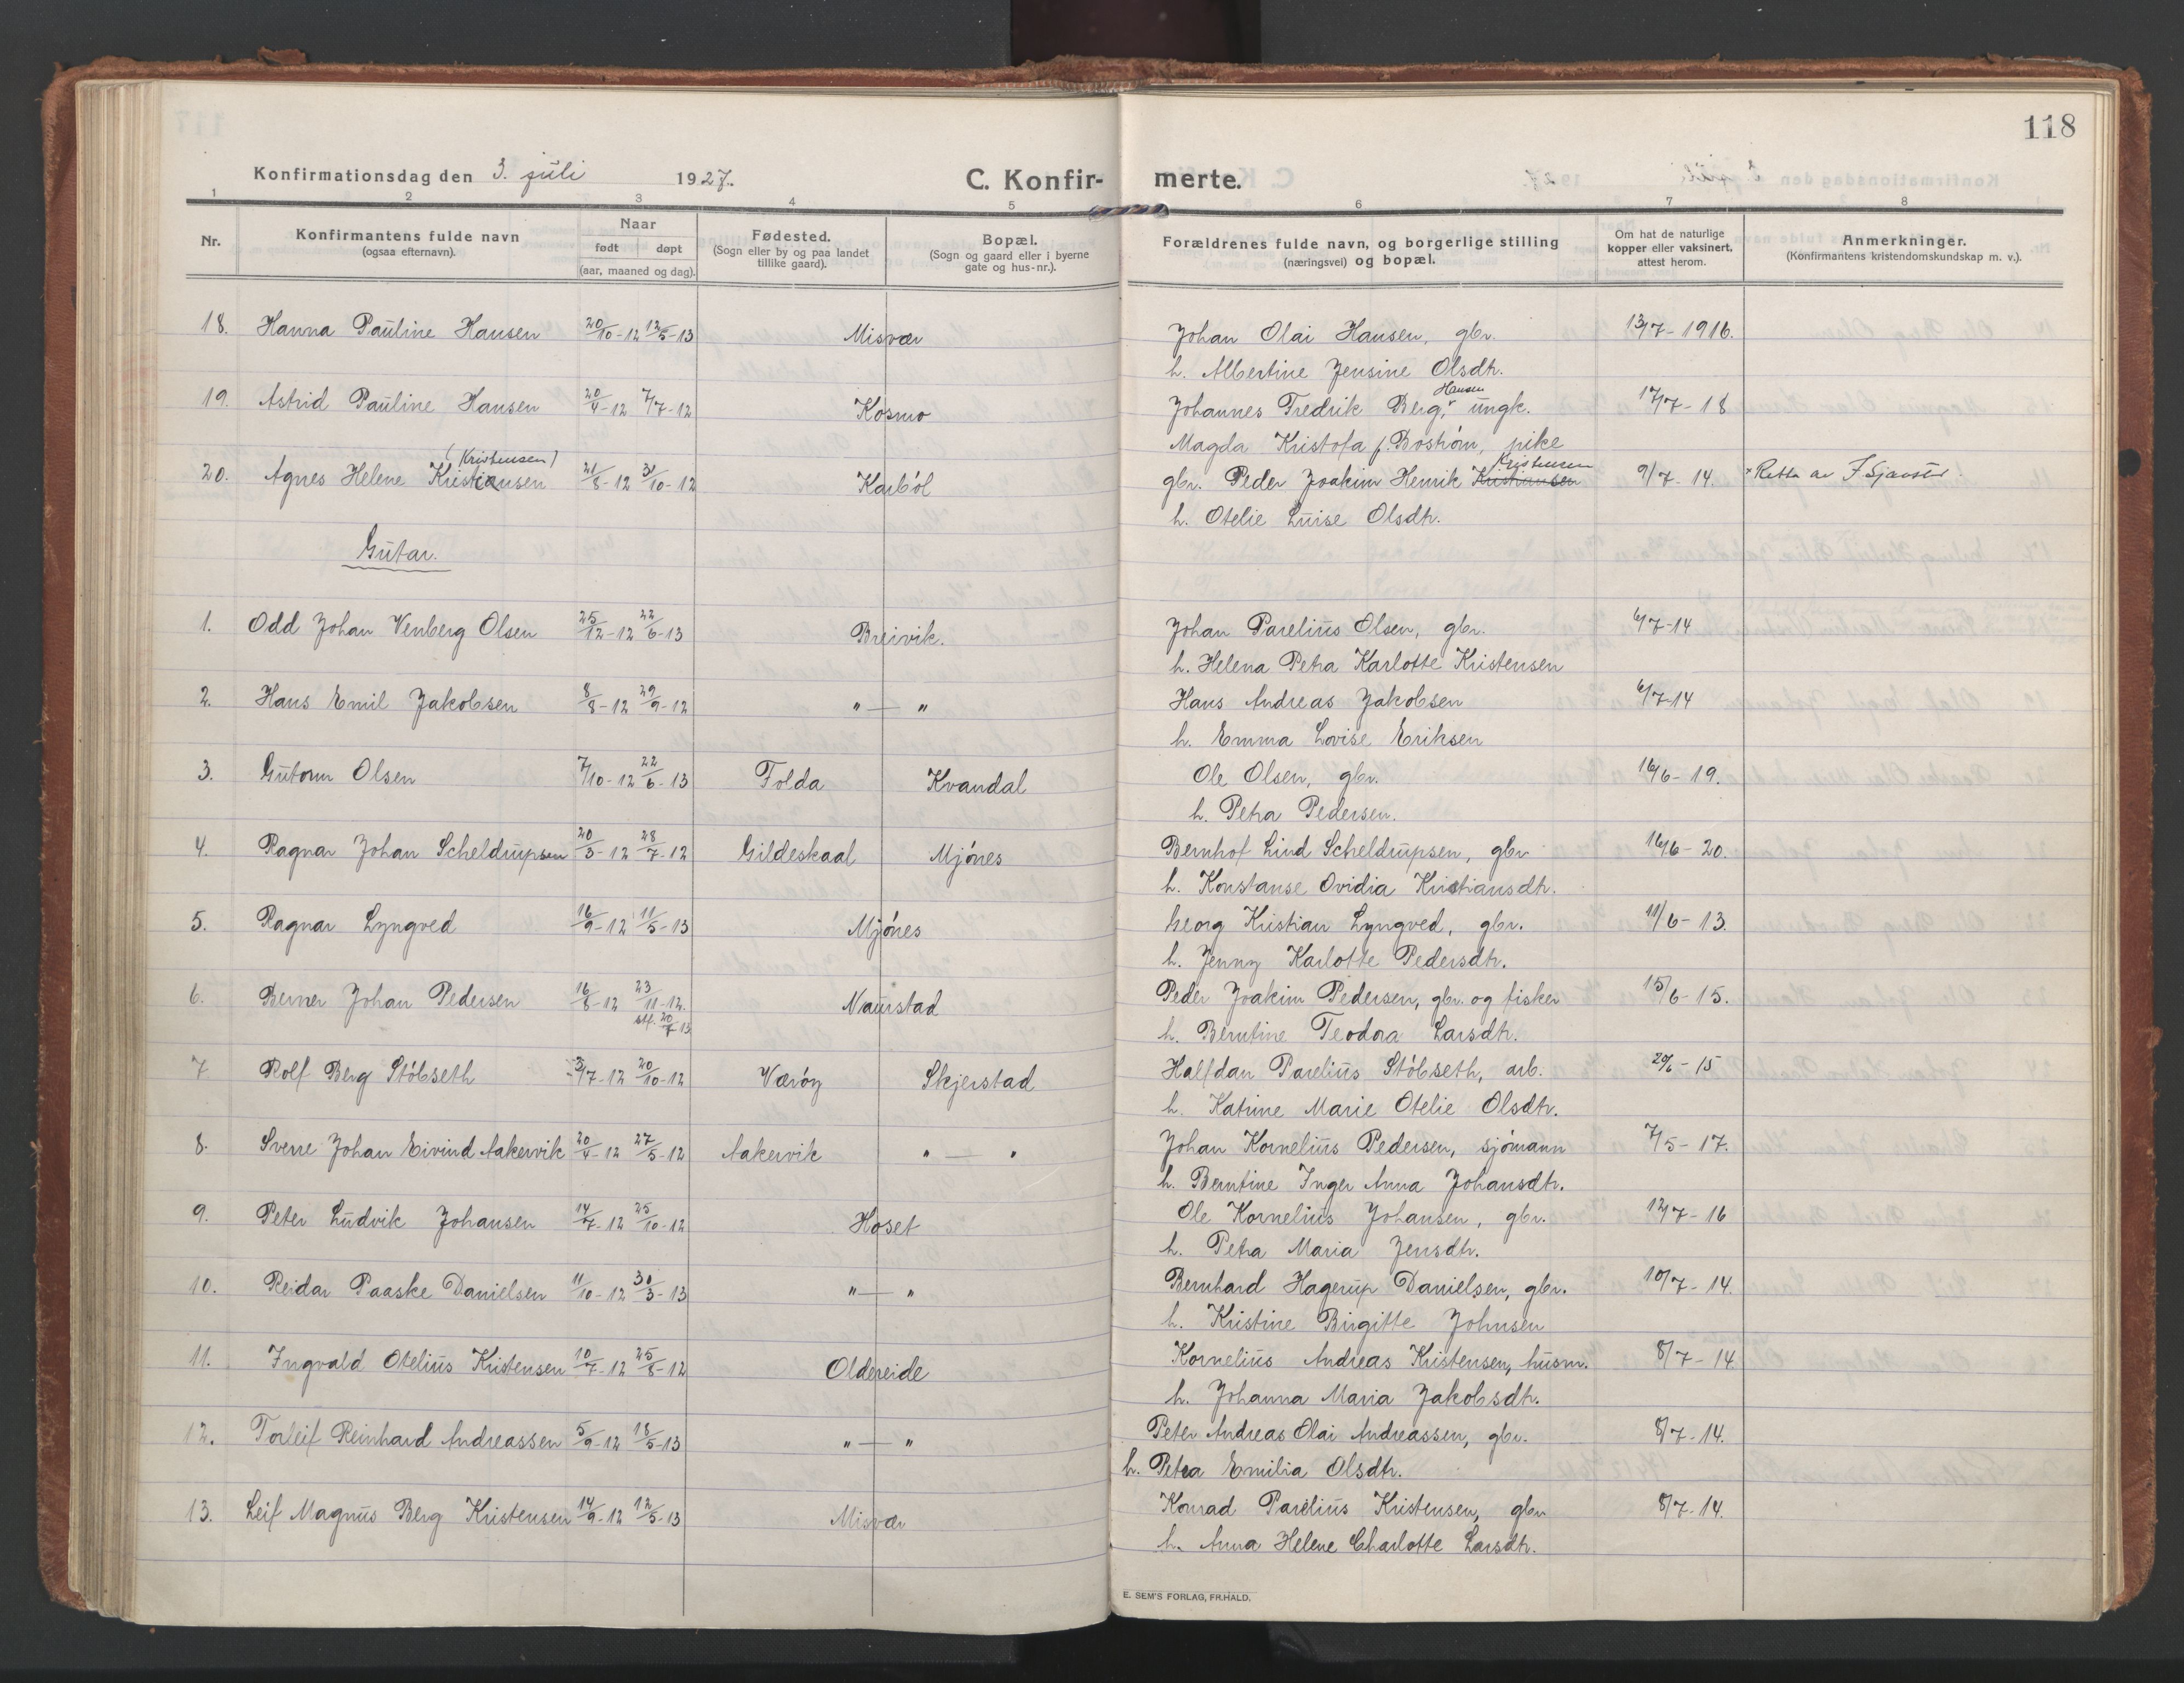 118
Konfirmationsdag den 3. juli 1927. C. Konfir- merte.
1 2 3 4 5 6 7 8
Nr. Konfirmantens fulde navn (ogsaa efternavn). Naar født døpt (aar, maaned og dag). Fødested. (Sogn eller by og paa landet tillike gaard). Bopæl. (Sogn og gaard eller i byerne gate og hus-nr.). Forældrenes fulde navn, og borgerlige stilling (næringsvei) og bopæl. Om hat de naturlige kopper eller vaksinert, attest herom. Anmerkninger. (Konfirmantens kristendomskundskap m. v.).
18. Hanna Pauline Hansen 20/10-12 12/5-13 Misvær Johan Olai Hansen, gbr. 13/7-1916.
h. Albertine Jensine Olsdtr.
19. Astrid Pauline Hansen 20/4-12 7/7-12 Kosmo Johannes Fredrik Berg, Hansen ungk. 17/7-18
Magda Kristofa f. Boström, pike
(Kristensen) Kristensen
20. Agnes Helene Kristiansen 21/8-12 31/10-12 Karböl gbr. Peder Joakim Henrik Kristiansen 9/7-14. Retta av F Sjavster.
h. Otelie Luise Olsdtr.
Gutar.
1. Odd Johan Venberg Olsen 25/12-12 22/6-13 Breivik. Johan Parelius Olsen, gbr. 6/7-14
h. Helena Petra Karlotte Kristensen
2. Hans Emil Jakobsen 8/8-12 29/9-12 " — " Hans Andreas Jakobsen 6/7-14
h. Emma Lovise Eriksen
3. Gutorm Olsen 7/10-12 22/6-13 Folda Kvandal Ole Olsen, gbr. 16/6-19.
h. Petra Pedersen.
4. Ragnar Johan Scheldrupsen 20/3-12 28/7-12 Gildeskaal Mjónes Bernhof Lind Scheldrupsen, gbr 16/6-20.
h. Konstanse Ovidia Kristiansdtr.
5. Ragnar Lyngved 16/9-12 11/5-13 Mjónes Georg Kristian Lyngved, gbr. 11/6-13.
h. Jenny Karlotte Pedersdtr.
6. Berner Johan Pedersen 16/8-12 23/11-12. stf. 20/7-13 Naurstad Peder Joakim Pedersen, gbr. og fisker 15/6-15.
h. Berntine Teodora Larsdtr.
7 Rolf Berg Stóbseth 3/7-12 20/10-12 Væróy Skjerstad Halfdan Parelius Stóbseth, arb. 29/6-15
h. Katrine Marie Otelie Olsdtr.
8. Sverre Johan Eivind Aakervik 20/4-12 27/5-12 Aakervik " — " Johan Kornelius Pedersen, sjómann 7/5-17.
h. Berntine Inger Anna Johansdtr.
9. Peter Ludvik Johansen 14/7-12 25/10-12 Hoset Ole Kornelius Johansen, gbr. 12/7-16
h. Petra Maria Jensdtr.
10. Reidar Paaske Danielsen 11/10-12 30/3-13 " — " Bernhard Hagerup Danielsen, gbr. 10/7-14.
h. Kristine Birgitte Johnsen
11. Ingvald Otelius Kristensen 10/7-12 25/8-12 Oldereide Kornelius Andreas Kristensen, husm. 8/7-14.
h. Johanna Maria Jakobsdtr.
12. Torleif Reinhard Andreassen 5/9-12 18/5-13 " — " Peter Andreas Olai Andreassen, gbr. 8/7-14.
h. Petra Emilia Olsdtr.
13. Leif Magnus Berg Kristensen 14/9-12 12/5-13 Misvær Konrad Parelius Kristensen, gbr 8/7-14.
h. Anna Helene Charlotte Larsdtr.
E. SEM'S FORLAG, FR.HALD.